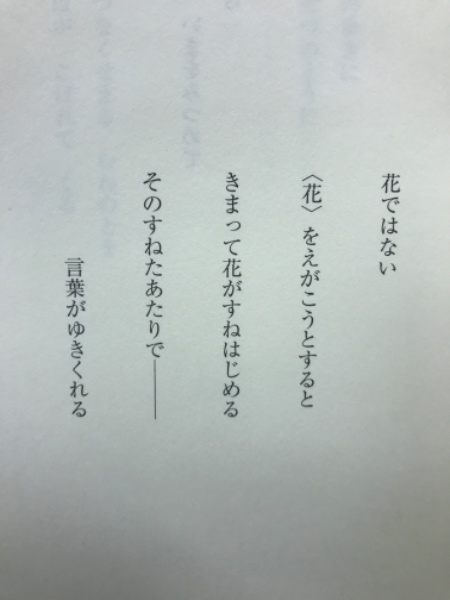 花ではない
〈花〉をえがこうとすると
きまって花がすねはじめる
そのすねたあたりで――
言葉がゆきくれる